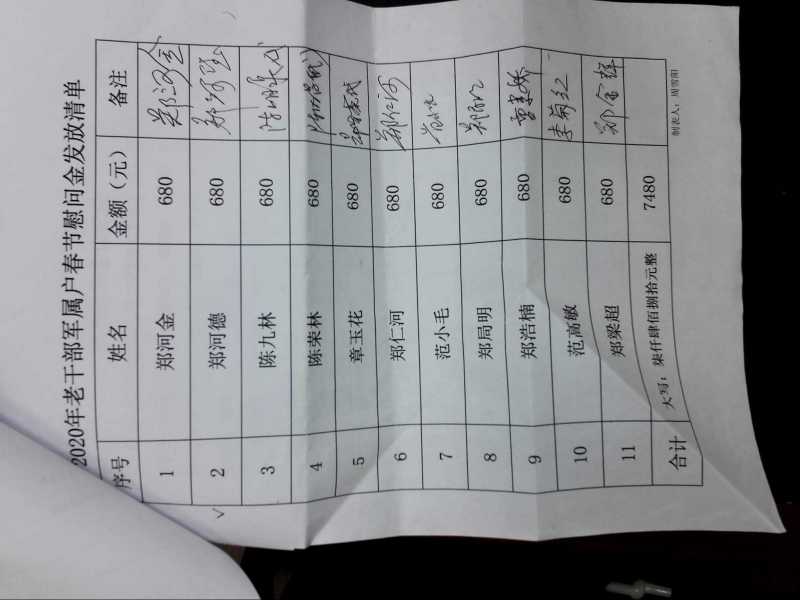 2020年老干部军属户春节慰问金发放清单
序号 姓名 金额（元） 备注
1 郑河金 680 郑河金
2 郑河德 680 郑河强
3 陈九林 680
4 陈荣林 680
5 章玉花 680
6 郑仁河 680 郑仁河
7 范小毛 680 范小毛
8 郑局明 680
9 郑浩楠 680
10 范高敏 680 李菊红
11 郑梁超 680 郑金辉
合计 大写：柒仟肆佰捌拾元整 7480
制表人：周雪阳